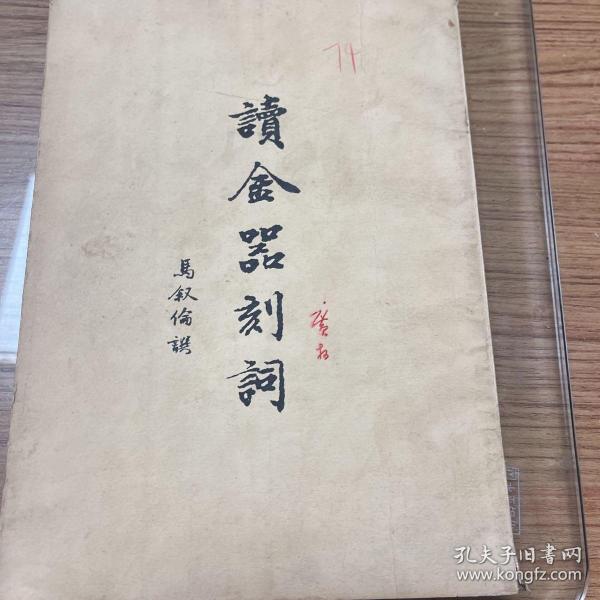 74
讀金器刻詞
馬叙倫譔
孔夫子旧书网
www.kongfz.com